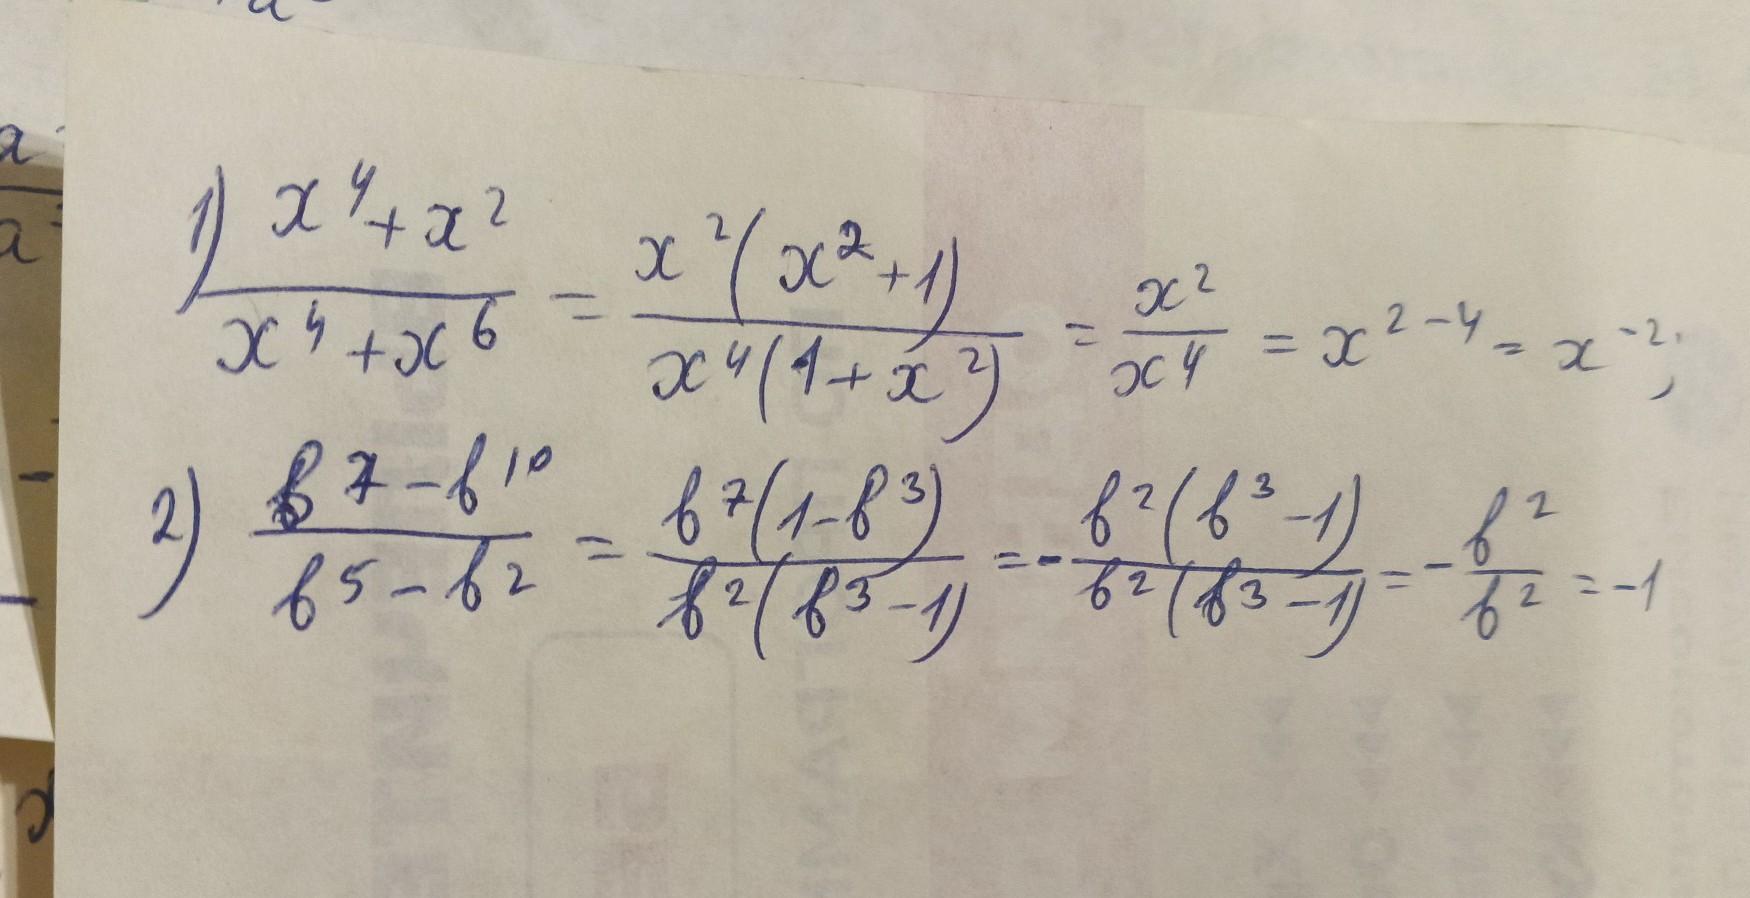 1) (x⁴ + x²)/(x⁴ + x⁶) = (x²(x² + 1))/(x⁴(1 + x²)) = x²/x⁴ = x²⁻⁴ = x⁻²;
2) (b⁷ - b¹⁰)/(b⁵ - b²) = (b⁷(1 - b³))/(b²(b³ - 1)) = - (b²(b³ - 1))/(b²(b³ - 1)) = - b²/b² = -1